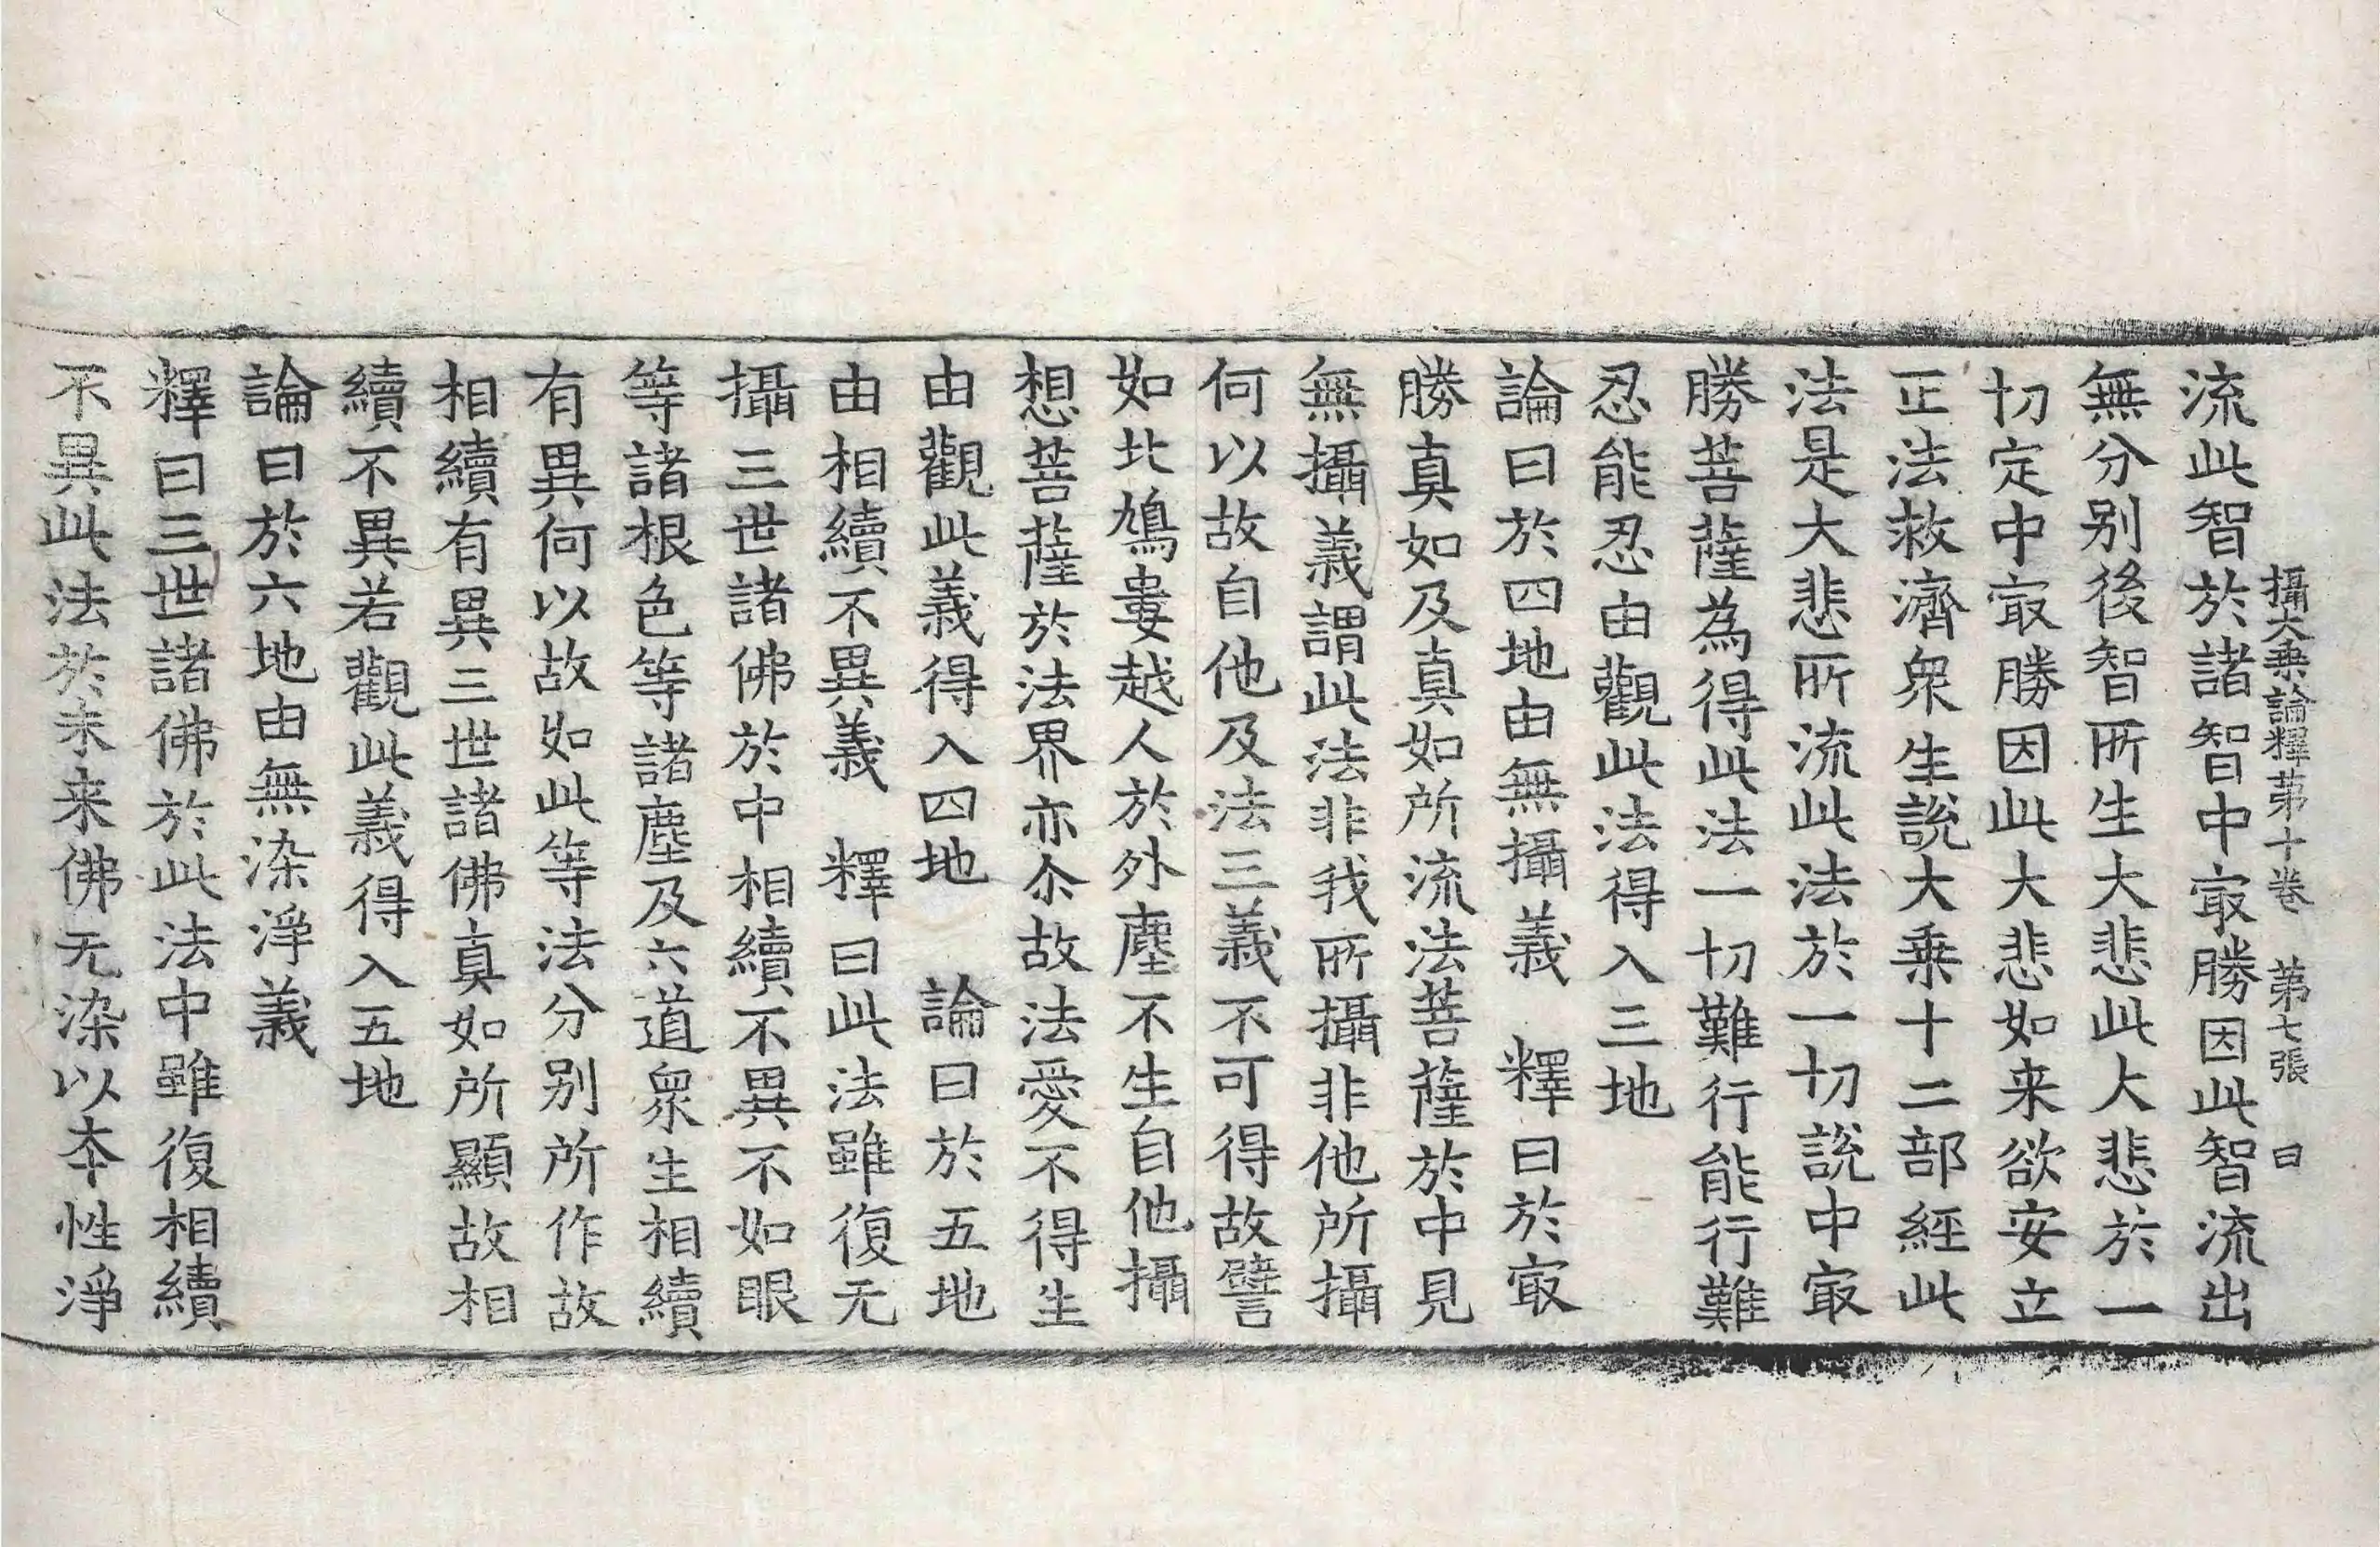 攝大乗論釋苐十卷 苐七張 曰
流此智於諸智中㝡勝因此智流出
無分别後智所生大悲此大悲於一
切定中㝡勝因此大悲如来欲安立
正法救濟衆生說大乗十二部經此
法是大悲所流此法於一切說中㝡
勝菩薩為得此法一切難行能行難
忍能忍由觀此法得入三地
論曰於四地由無攝義 釋曰於㝡
勝真如及真如所流法菩薩於中見
無攝義謂此法非我所攝非他所攝
何以故自他及法三義不可得故譬
如北鳩婁越人於外塵不生自他攝
想菩薩於法界亦尒故法愛不得生
由觀此義得入四地 論曰於五地
由相續不異義 釋曰此法雖復无
攝三世諸佛於中相續不異不如眼
等諸根色等諸塵及六道衆生相續
有異何以故如此等法分别所作故
相續有異三世諸佛真如所顯故相
續不異若觀此義得入五地
論曰於六地由無染淨義
釋曰三世諸佛於此法中雖復相續
不異此法於未来佛无染以夲性淨